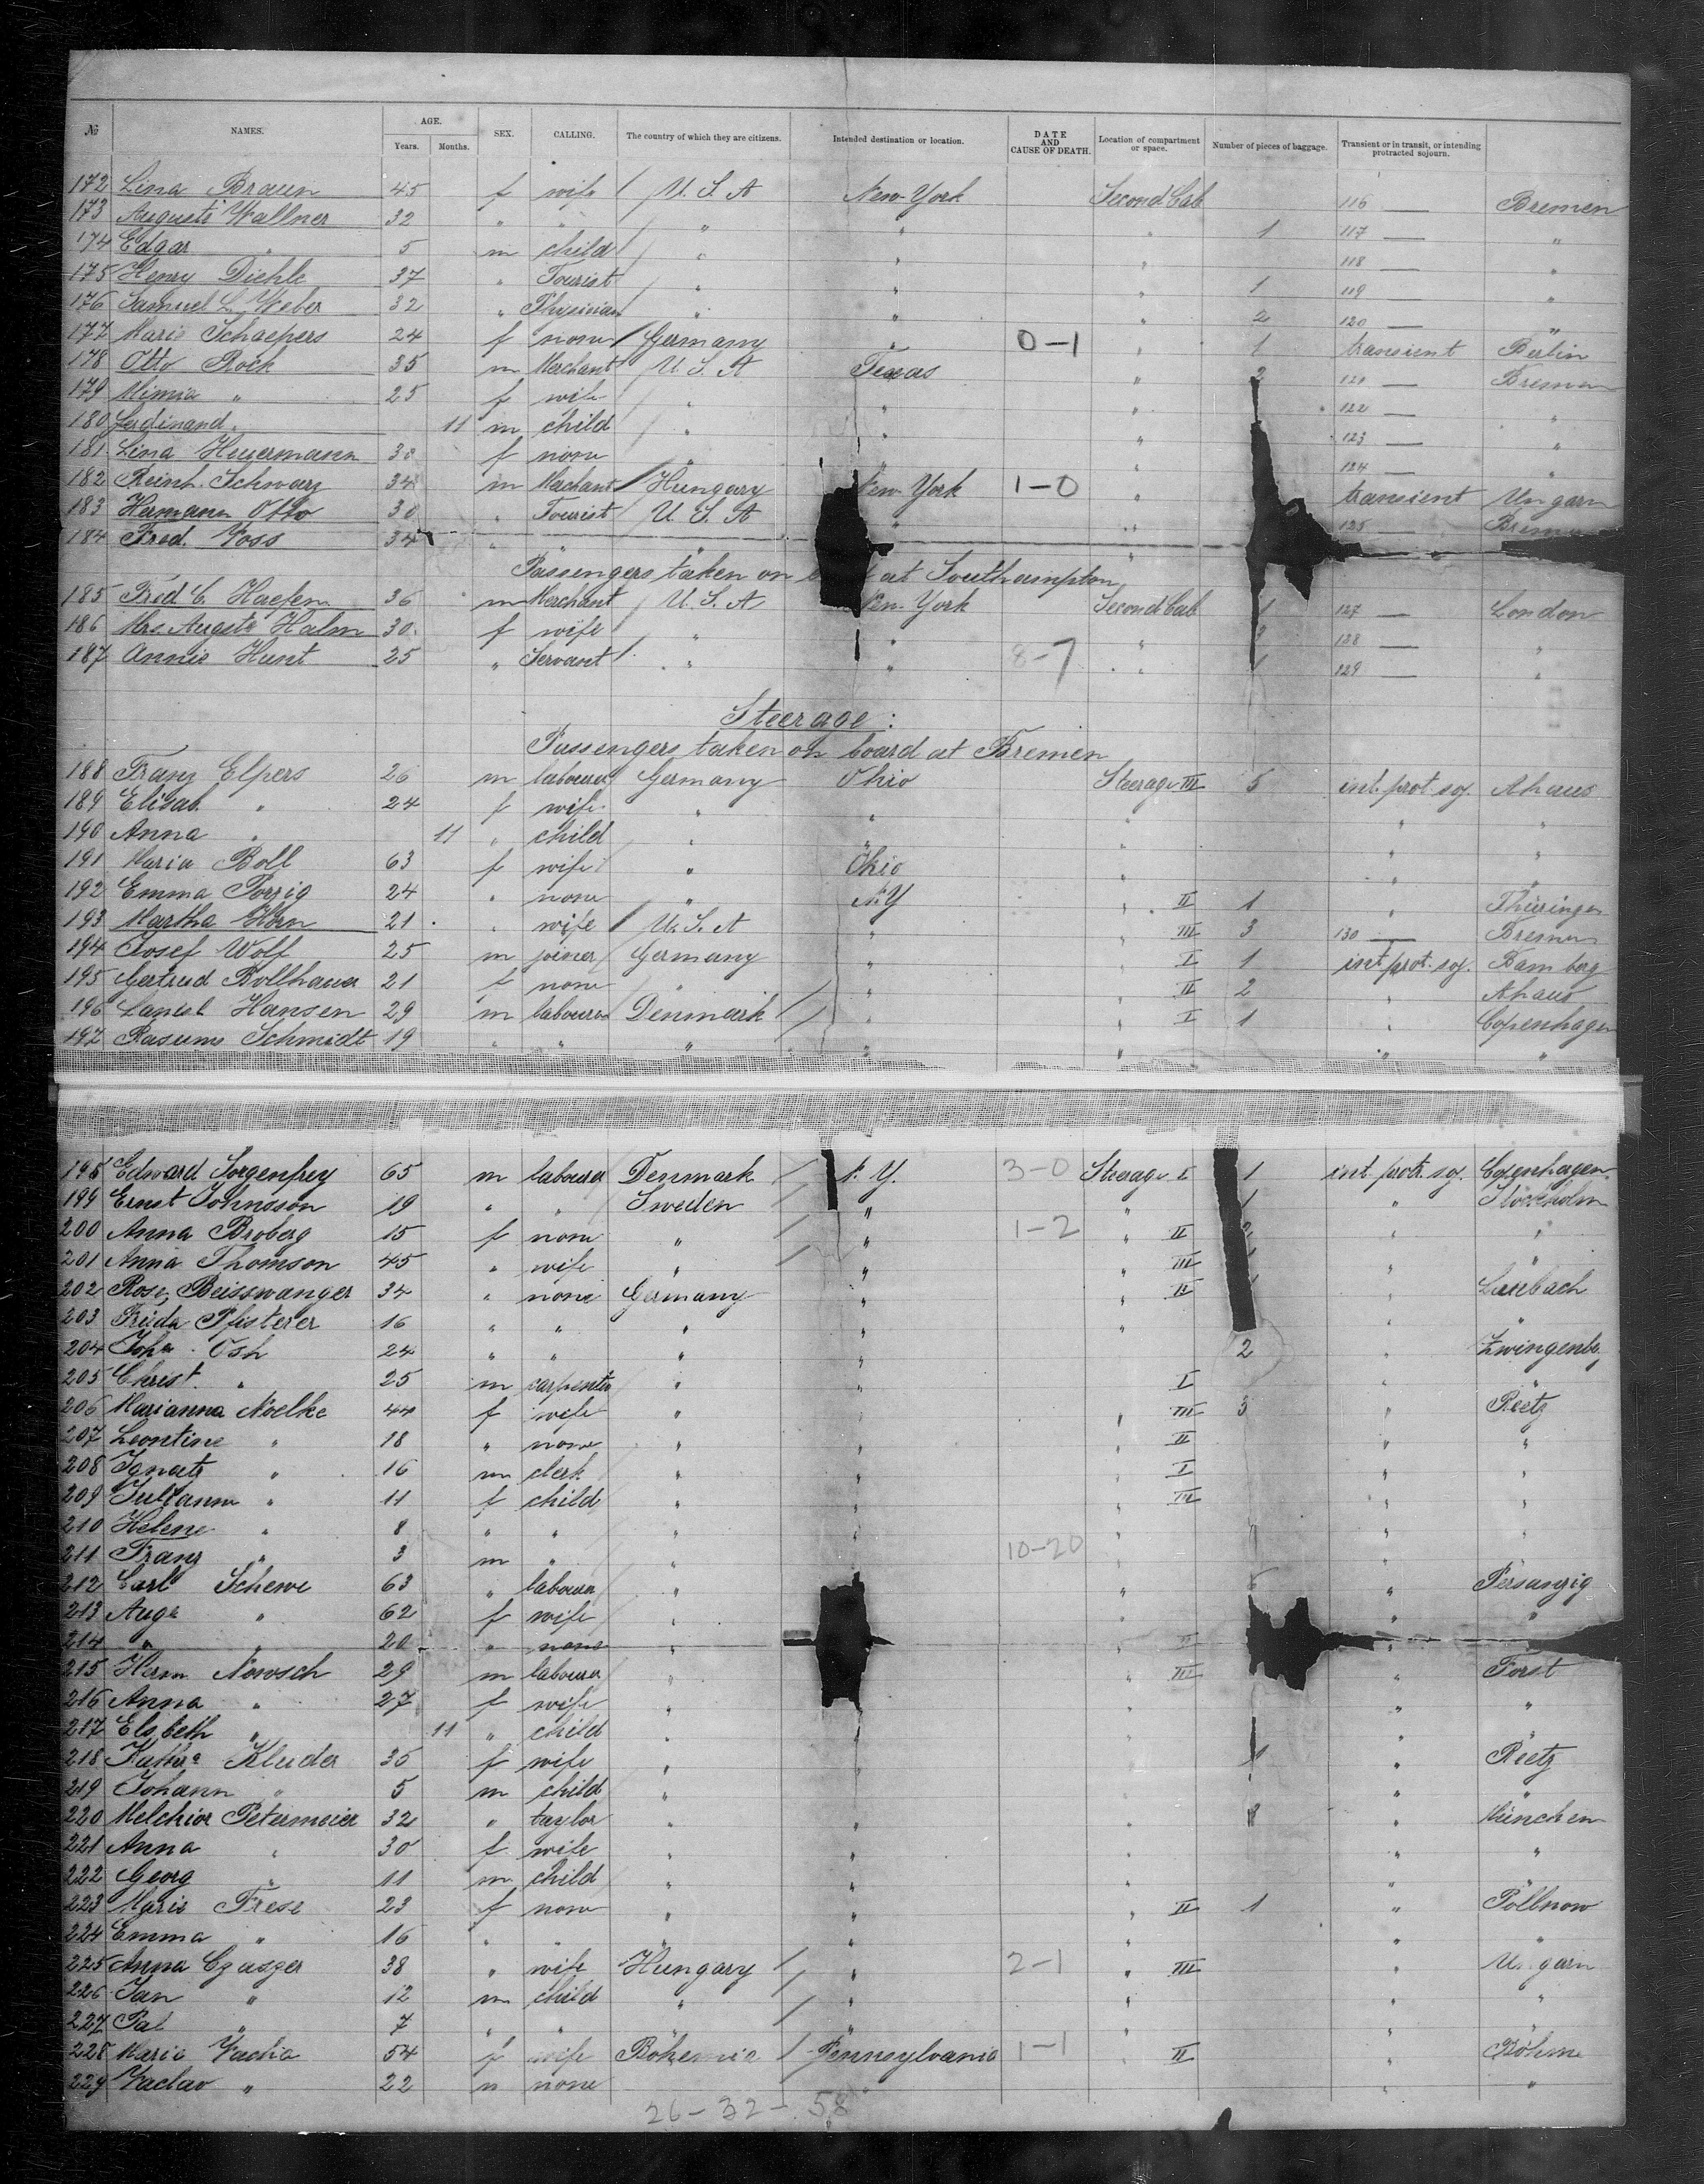 № NAMES. AGE. Years. Months. SEX. CALLING. The country of which they are citizens. Intended destination or location. DATE AND CAUSE OF DEATH. Location of compartment or space. Number of pieces of baggage. Transient or in transit, or intending protracted sojourn.
172 Lina Braun 45 f wife U. S. A New-York Second Cab 116 — Bremen
173 Auguste Wallner 32 " " " " " 1 117 — "
174 Edgar " 5 m child " " " 118 — "
175 Henry Diehle 37 " Tourist " " " 1 119 "
176 Samuel L. Weber 32 " Physician " " " 2 120 — "
177 Marie Schaepers 24 f none Germany " 0-1 " 1 transient Berlin
178 Otto Rock 35 m Merchant U. S. A Texas " 2 121 — Bremen
179 Minnia " 25 f wife " " " 122 — "
180 Ferdinand " 11 m child " " " 123 — "
181 Lina Heuermann 30 f none " " " 124 — "
182 Reinh. Schwarz 34 m Merchant Hungary New York 1-0 " transient Ungarn
183 Hermann Otto 30 " Tourist U. S. A " " 125 — Bremen
184 Fred. Voss 34 " " " "
Passengers taken on at Southampton
185 Fred C. Haefen 36 m Merchant U. S. A New-York Second Cab 1 127 — London
186 Mrs. Auguste Halm 30 f wife " " " 128 — "
187 Annie Hunt 25 " Servant " " 8-7 " 1 129 — "
Steerage:
Passengers taken on board at Bremen
188 Franz Elpers 26 m labourer Germany Ohio Steerage III 5 int. prot. soj. Ahaus
189 Elisab. " 24 f wife " " " " "
190 Anna " 11 " child " " " " "
191 Maria Boll 63 f wife " Ohio " " "
192 Emma Porzig 24 " none " N.Y " II 1 " Thüringen
193 Martha Horn 21 " wife U. S. A " " III 3 130 — Bremen
194 Josef Wolf 25 m joiner Germany " " I 1 int. prot. soj. Bamberg
195 Gertrud Bollhauer 21 f none " " " II 2 " Ahaus
196 Hansen 29 m labourer Denmark " " I 1 " Copenhagen
197 Rasums Schmidt 19 " " " " " " "
198 Edward Sorgenfrey 65 m labourer Denmark N. Y. 3-0 Steerage I 1 int. protr. soj. Copenhagen
199 Ernst Johnsson 19 " " Sweden " " 1 " Stockholm
200 Anna Broberg 15 f none " " 1-2 " II " "
201 Anna Thomson 45 " wife " " " III " "
202 Rose Beisswanger 34 " none Germany " " II "
203 Frieda Pfisterer 16 " " " " " " "
204 Osh 24 " " " " 2 " Zwingenbg
205 Christ. " 25 m carpenter " " I " "
206 Marianna Noelke 44 f wife " " " III 3 " Reetz
207 Leontine " 18 " none " " " II " "
208 Ignatz " 16 m clerk " " " I " "
209 Julianna " 11 f child " " " III " "
210 Helene " 8 " " " " " " "
211 Franz " 3 m " " " 10-20 " " "
212 Carl Schewe 63 " labourer " " " Persanzig
213 Auga " 62 f wife " " " "
214 " " 20 " none " " II "
215 Herm Nowsch 29 m labourer " " III " Forst
216 Anna " 27 f wife " " " "
217 Elsbeth " 11 " child " " " " "
218 Kathra Kluder 35 f wife " " " 1 " Reetz
219 Johann " 5 m child " " " "
220 Melchior Petermeier 32 " taylor " " " " München
221 Anna " 30 f wife " " " " "
222 Georg " 11 m child " " " " "
223 Marie Frese 23 f none " " " II 1 " Pöllnow
224 Emma " 16 " " " " " " "
225 Anna Czuszer 38 " wife Hungary " 2-1 " III " Ungarn
226 Jan " 12 m child " " " " "
227 Pal " 7 " " " " " "
228 Marie Vacha 54 f wife Bohemia Pennsylvania 1-1 " II " Böhme
229 Vaclav " 22 m none " " "
26-32-58